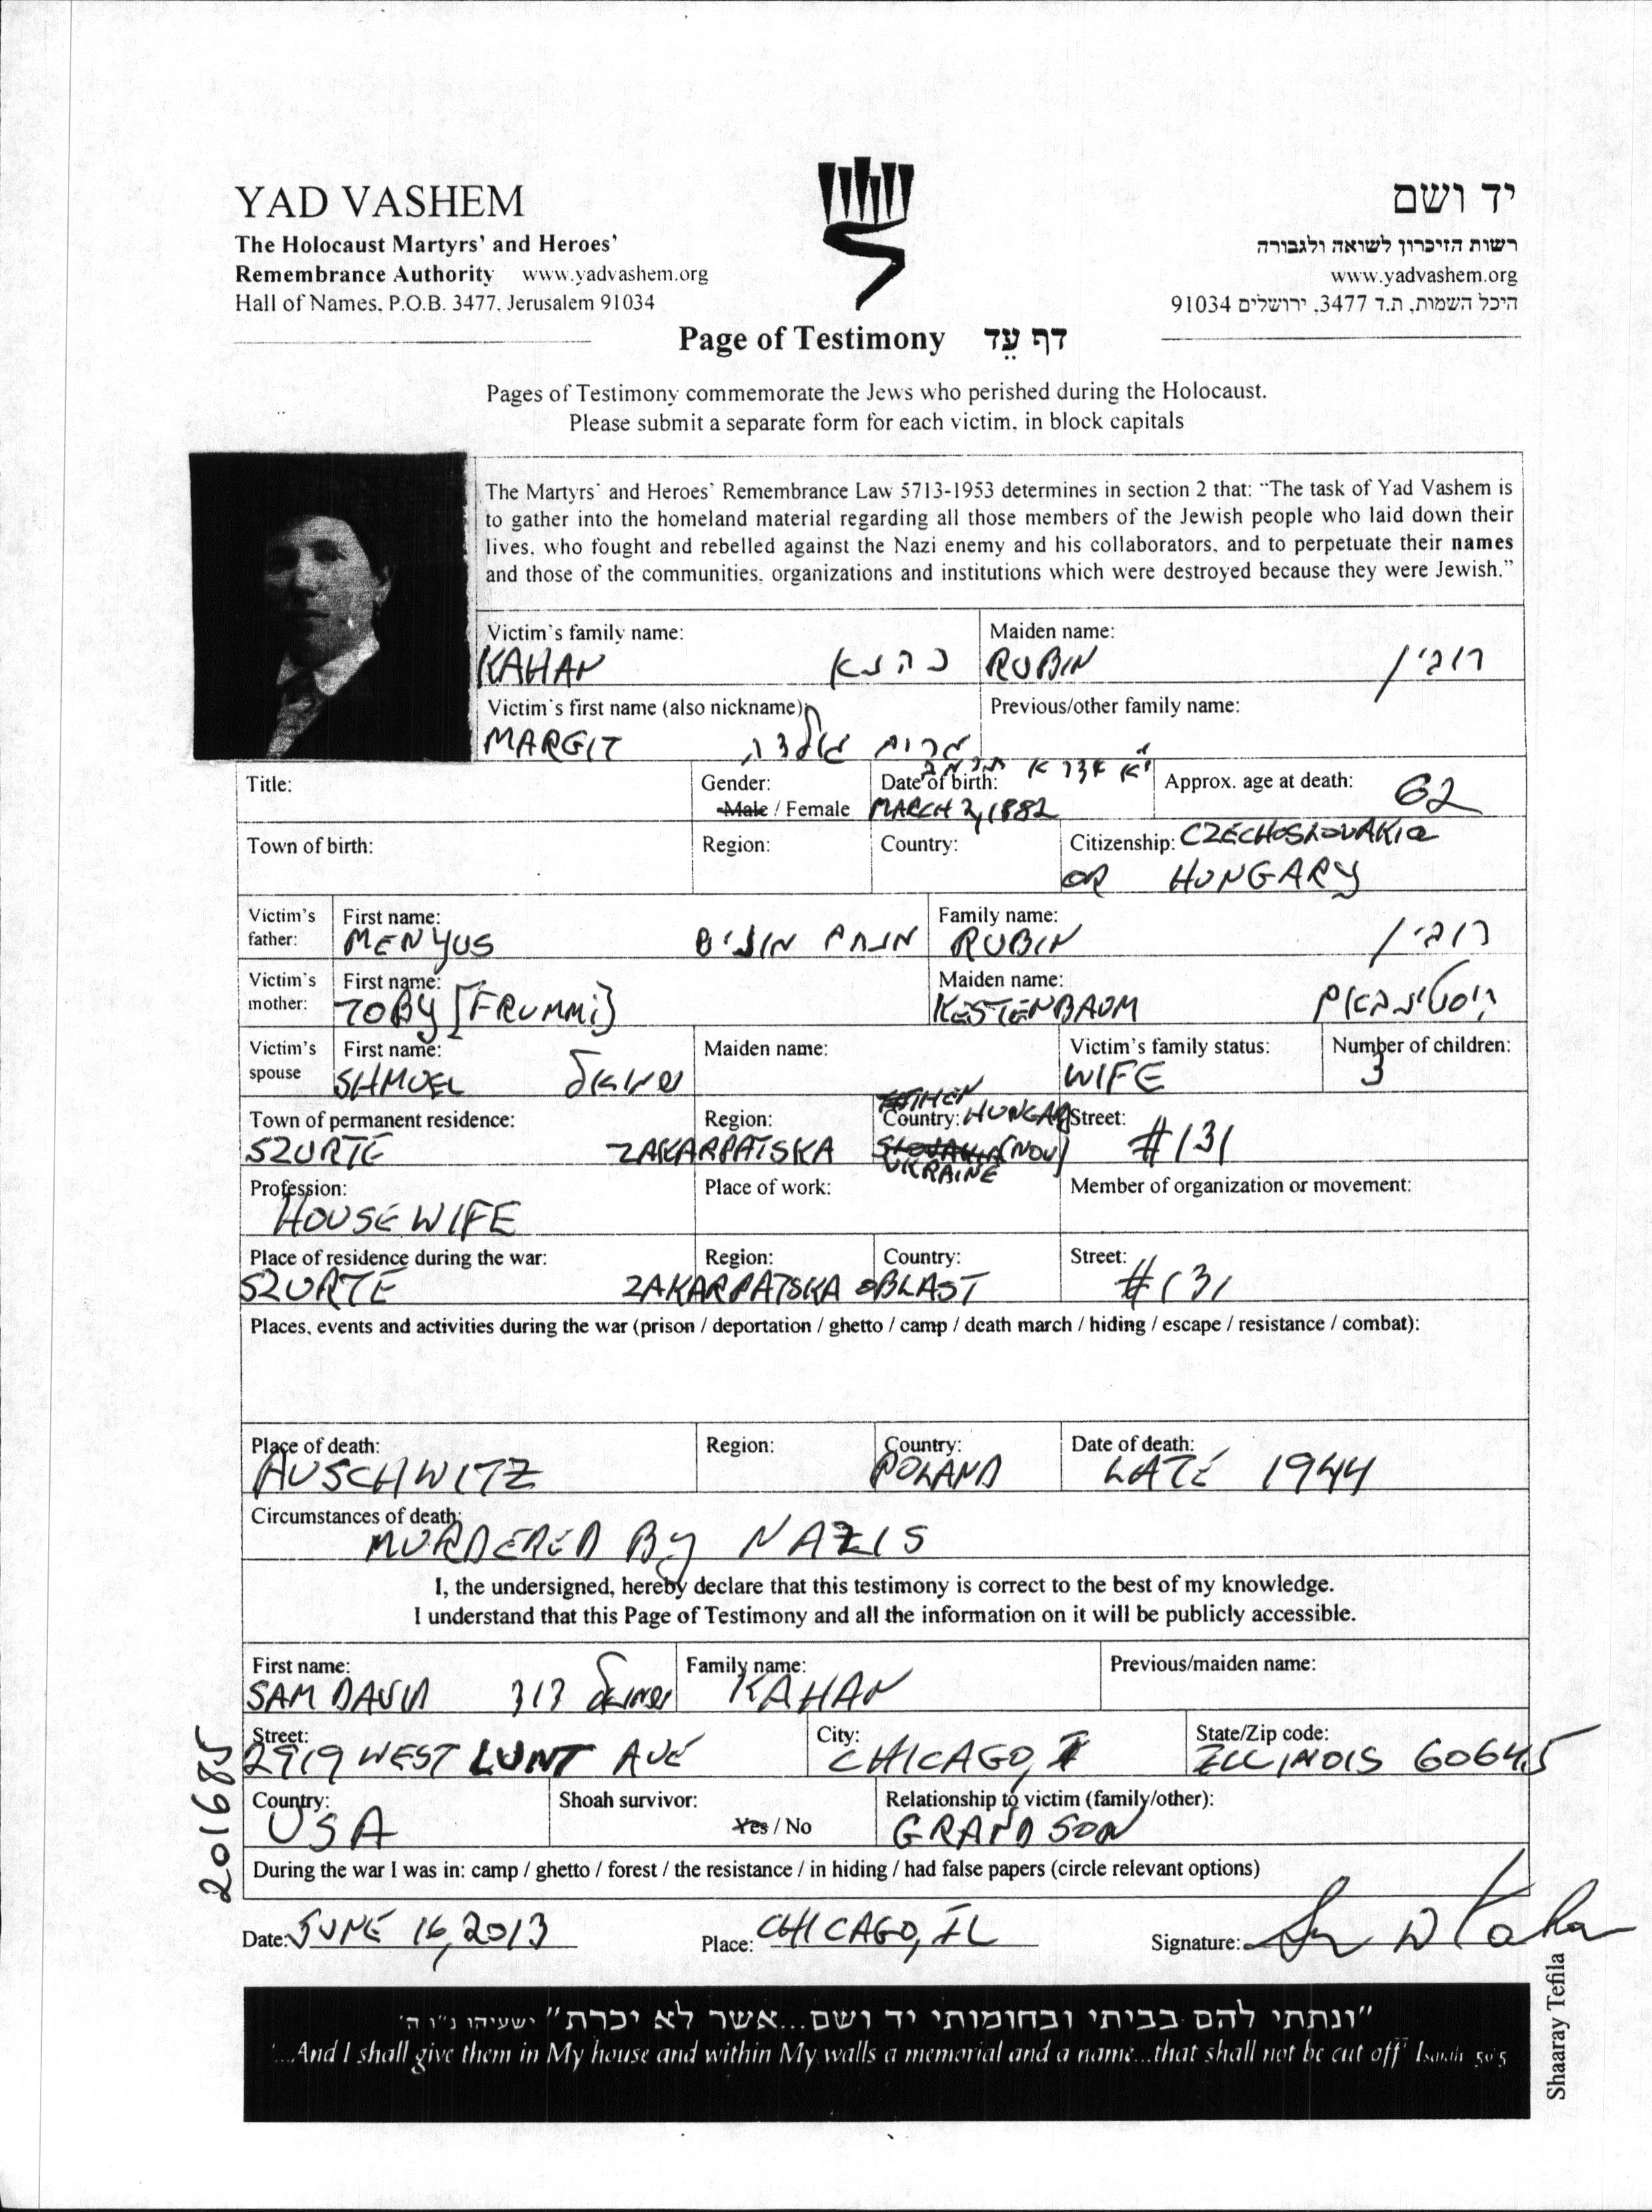 YAD VASHEM
The Holocaust Martyrs' and Heroes'
Remembrance Authority www.yadvashem.org
Hall of Names, P.O.B. 3477, Jerusalem 91034
יד ושם
רשות הזיכרון לשואה ולגבורה
www.yadvashem.org
היכל השמות, ת.ד 3477, ירושלים 91034
Page of Testimony דף עֵד
Pages of Testimony commemorate the Jews who perished during the Holocaust.
Please submit a separate form for each victim, in block capitals
The Martyrs' and Heroes' Remembrance Law 5713-1953 determines in section 2 that: "The task of Yad Vashem is
to gather into the homeland material regarding all those members of the Jewish people who laid down their
lives, who fought and rebelled against the Nazi enemy and his collaborators, and to perpetuate their names
and those of the communities, organizations and institutions which were destroyed because they were Jewish."
Victim's family name: Maiden name:
KAHAN כהנא RUBIN רובין
Victim's first name (also nickname): Previous/other family name:
MARGIT
Title: Gender: Date of birth: Approx. age at death: 62
Male / Female MARCH 2, 1882
Town of birth: Region: Country: Citizenship: CZECHOSLOVAKIA
OR HUNGARY
Victim's father: First name: Family name:
MENYUS מנחם RUBIN רובין
Victim's mother: First name: Maiden name:
TOBY [FRUMMI] KESTENBAUM
Victim's spouse First name: Maiden name: Victim's family status: Number of children:
SHMUEL שמואל WIFE 3
Town of permanent residence: Region: Country: HUNGARY Street:
SZURTE ZAKARPATSKA SLOVAKIA (NOW) #131
UKRAINE
Profession: Place of work: Member of organization or movement:
HOUSEWIFE
Place of residence during the war: Region: Country: Street:
SZURTE ZAKARPATSKA OBLAST #131
Places, events and activities during the war (prison / deportation / ghetto / camp / death march / hiding / escape / resistance / combat):
Place of death: Region: Country: Date of death:
AUSCHWITZ POLAND LATE 1944
Circumstances of death:
MURDERED BY NAZIS
I, the undersigned, hereby declare that this testimony is correct to the best of my knowledge.
I understand that this Page of Testimony and all the information on it will be publicly accessible.
First name: Family name: Previous/maiden name:
SAM DAVID שמואל דוד KAHAN
Street: City: State/Zip code:
2919 WEST LUNT AVE CHICAGO, ILLINOIS 60645
Country: Shoah survivor: Relationship to victim (family/other):
USA Yes / No GRANDSON
During the war I was in: camp / ghetto / forest / the resistance / in hiding / had false papers (circle relevant options)
Date: JUNE 16, 2013 Place: CHICAGO, IL Signature: Sam D Kahan
201685
Shaaray Tefila
"ונתתי להם בביתי ובחומותי יד ושם...אשר לא יכרת" ישעיהו נ"ו ה'
"...And I shall give them in My house and within My walls a memorial and a name...that shall not be cut off" Isaiah 56:5